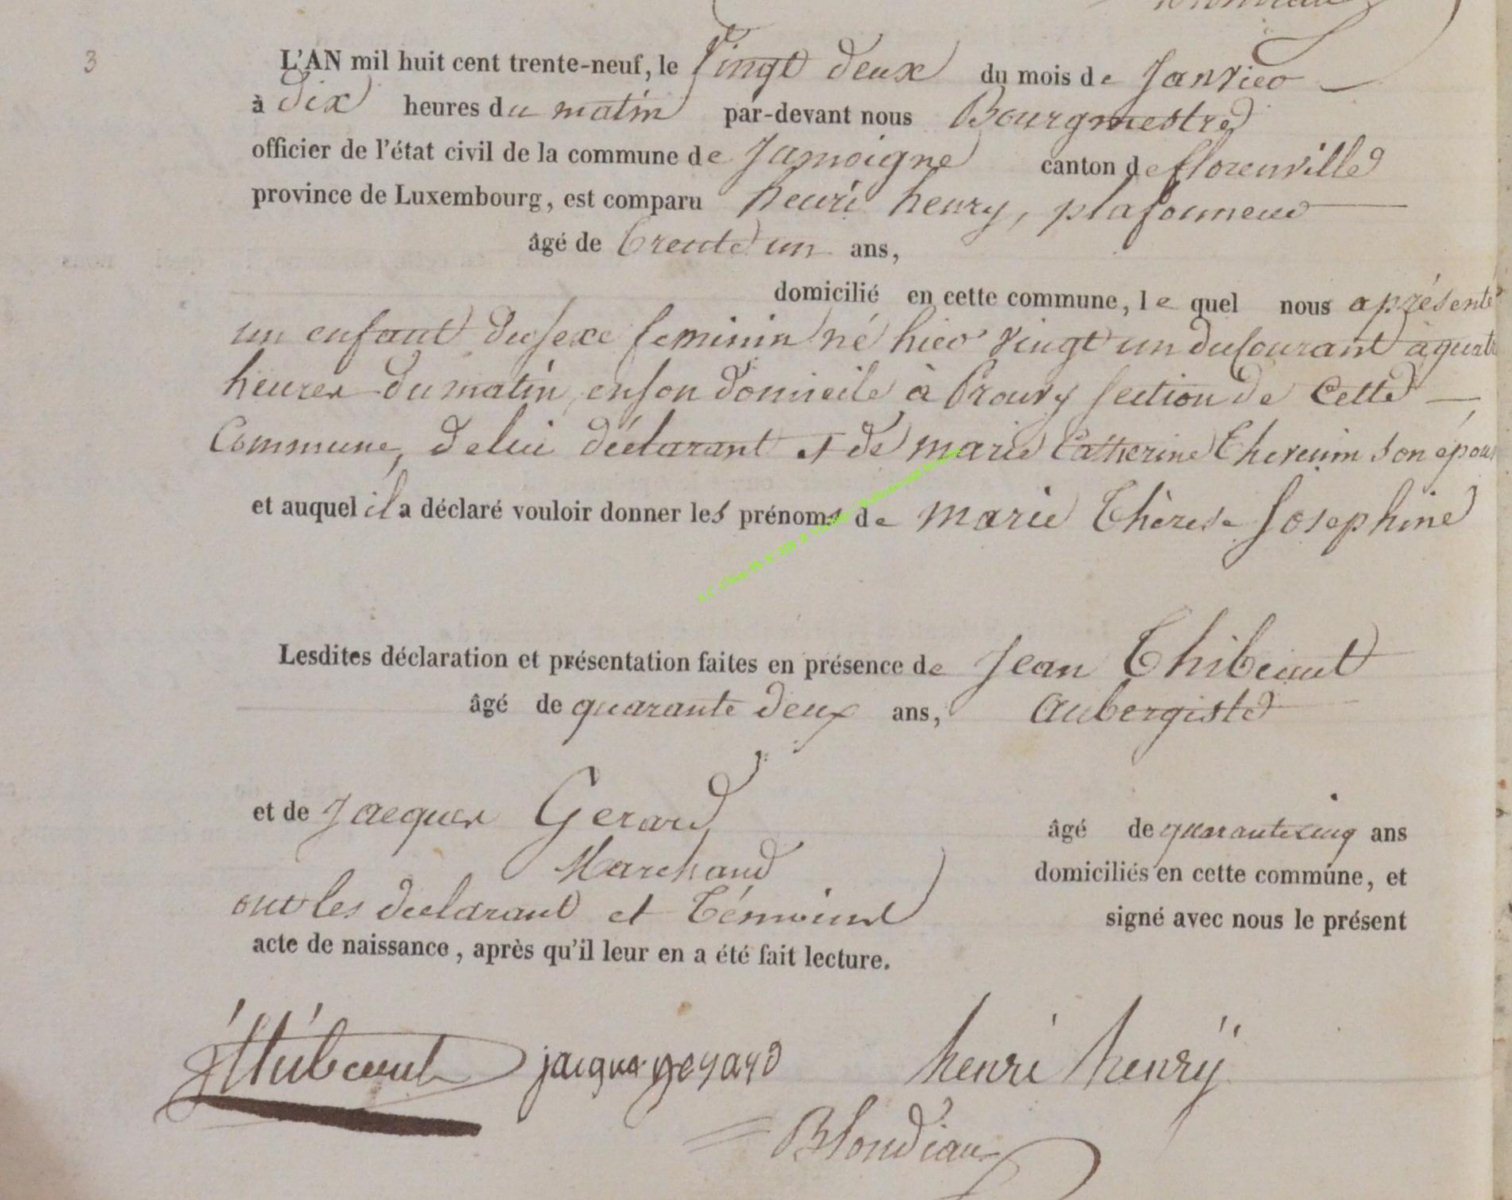 3
L'AN mil huit cent trente-neuf, le vingt deux du mois de Janvier
à dix heures du matin par-devant nous Bourgmestre
officier de l'état civil de la commune de Jamoigne canton de florenville
province de Luxembourg, est comparu henri henry, plafonneur
âgé de trente un ans,
domicilié en cette commune, le quel nous a présenté
un enfant du sexe feminin né hier vingt un du courant à quatre
heures du matin, en son domicile à Prouvy section de cette
Commune, de lui déclarant et de marie Catherine son épouse
et auquel il a déclaré vouloir donner les prénoms de marie Thèrese Josephine
Lesdites déclaration et présentation faites en présence de Jean Thibeaut
âgé de quarante deux ans, Aubergiste
et de Jacques Gerard âgé de quarante cinq ans
Marchand domiciliés en cette commune, et
ont les declarant et témoins signé avec nous le présent
acte de naissance, après qu'il leur en a été fait lecture.
JThibeaut jacque gerard henri henry
Blondiau